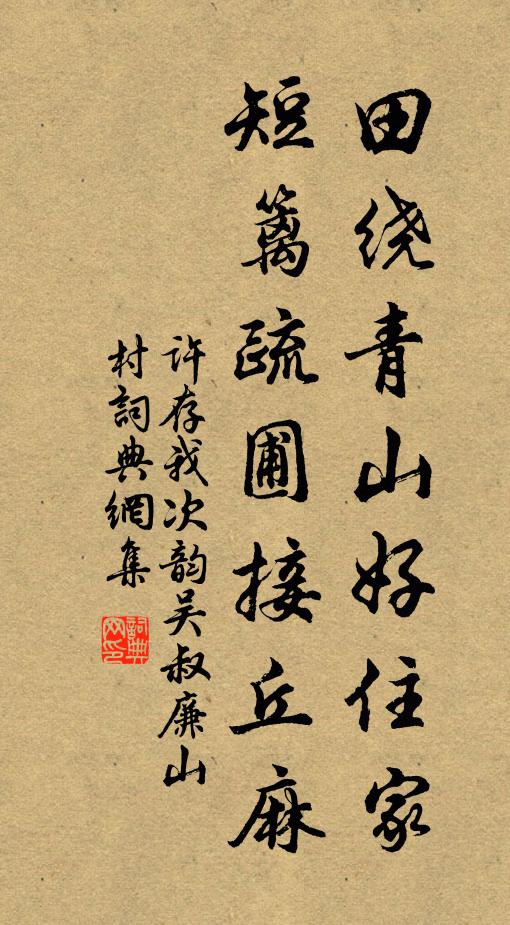 田绕青山好住家
短篱疏圃接丘麻
许存我次韵吴叔廉山
村詞典網集
詞典网印